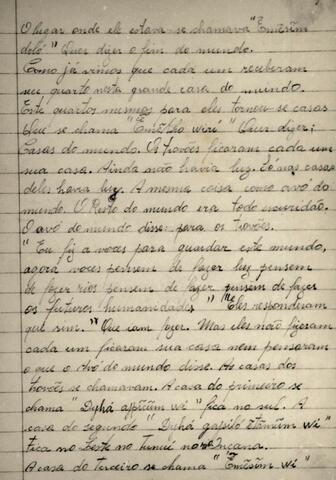 O lugar onde ele estava se chamava "Emẽsĩm
dolo" Quer dizer o fim do mundo.
Como já vimos que cada um receberam
seu quarto nesta grande casa do mundo.
Este quartos mesmos para eles tornou se casas
Que se chama "Ẽmẽkho wiri" Quer dizer;
Casas do mundo. Os Trovões ficaram cada um
sua casa. Ainda não havia luz. Só nas casas
deles havia luz. A mesma coisa como avo do
mundo. O Resto do mundo era todo escuridão.
O avô do mundo disse: para os trovões.
"Eu fiz a voces para guardar este mundo,
agora voces pensem de fazer luz pensem
de fazer rios pensem de fazer pensem de fazer
os futuros humanidades" Eles responderam
que sim. "Que iam fazer. Mas eles não fizeram
cada um ficaram sua casa nem pensaram
o que o Avô do mundo disse. As casas dos
trovões se chamavam. A casa do primeiro se
chama "Dyhá apũũm wi" fica no sul. A
casa do segundo "Dyhá gapulo etãnũm wi"
fica no Leste no Tunuí no Içana.
A casa do terceiro se chama "Ẽmẽsĩm wi"